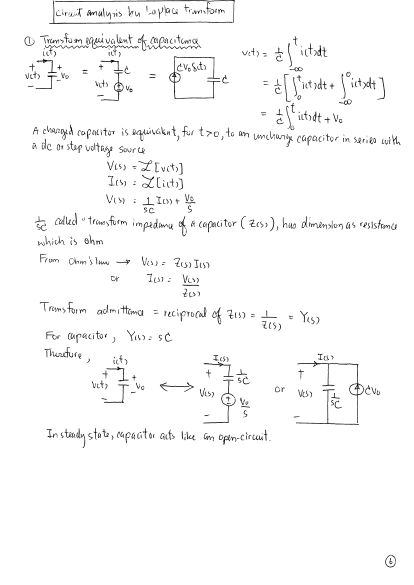 Circuit analysis by Laplace Transform
① Transform equivalent of capacitance
i(t) i(t)
+ v(t) - + V₀ - = + v(t) - C V₀ = CV₀δ(t) C
v(t) = 1/C ∫_{-∞}^{t} i(t)dt
= 1/C [∫_{0}^{t} i(t)dt + ∫_{-∞}^{0} i(t)dt]
= 1/C ∫_{0}^{t} i(t)dt + V₀
A charged capacitor is equivalent, for t>0, to an uncharge capacitor in series with
a dc or step voltage source
V(s) = ℒ[v(t)]
I(s) = ℒ[i(t)]
V(s) = 1/SC I(s) + V₀/S
1/SC called "transform impedance of a capacitor (Z(s)), has dimension as resistance
which is ohm
From Ohm's law → V(s) = Z(s)I(s)
or I(s) = V(s)/Z(s)
Transform admittance = reciprocal of Z(s) = 1/Z(s) = Y(s)
For capacitor, Y(s) = SC
Therefore,
i(t) I(s) I(s)
+ v(t) - + V₀ - ⟷ + V(s) - 1/SC V₀/S or + V(s) - 1/SC CV₀
In steady state, capacitor acts like an open-circuit.
6